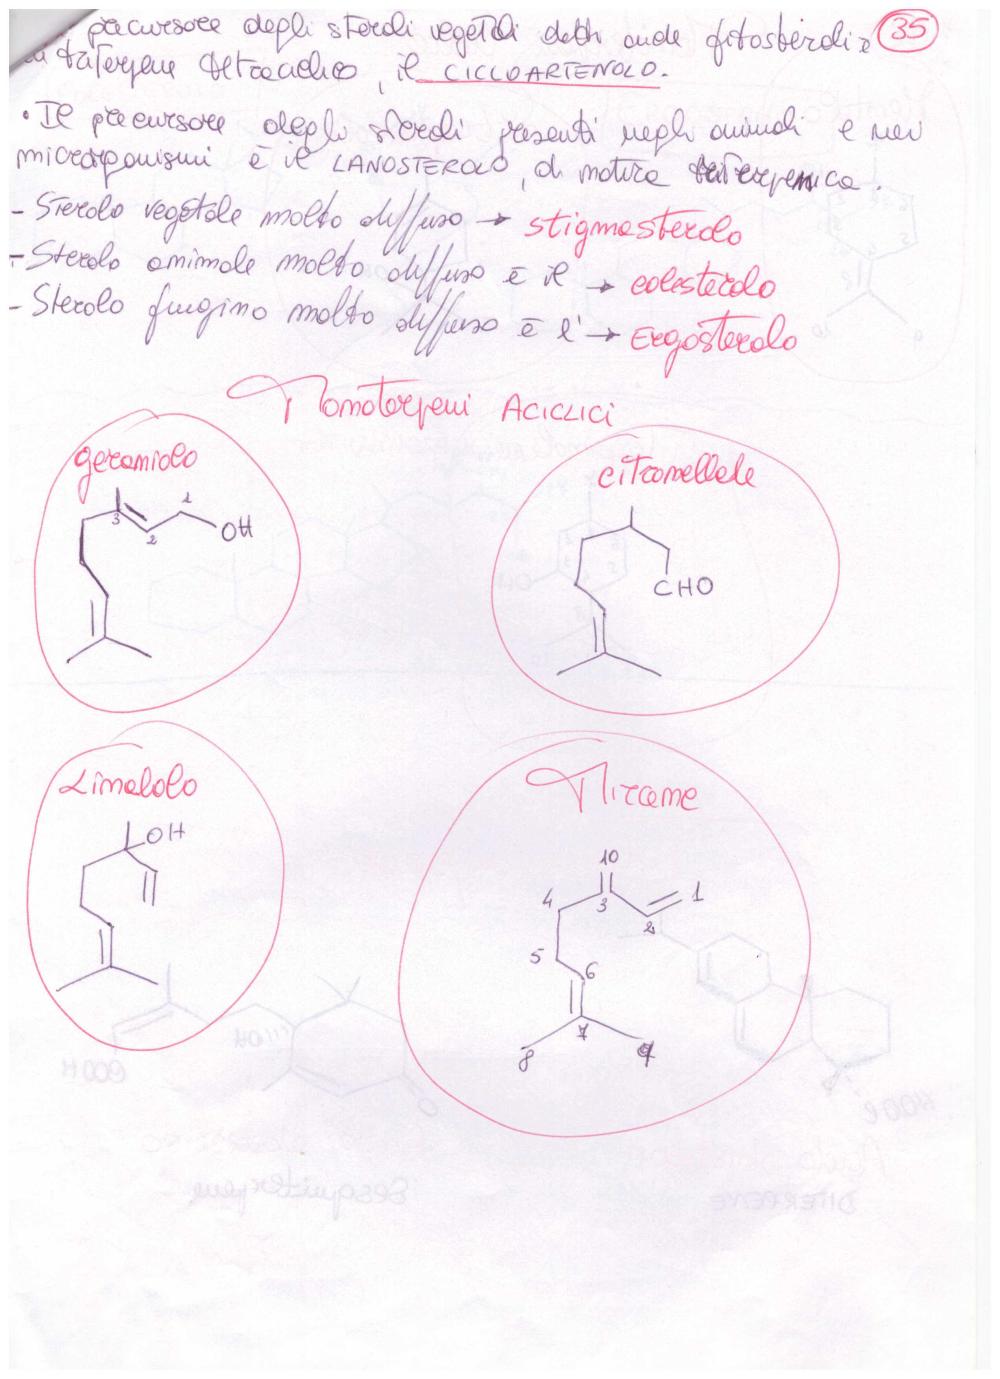 precursore degli steroli vegetali detti anche fitosteroli è
triterpene tetraciclico, il CICLOARTENOLO.
35
• Il precursore degli steroli presenti negli animali e nei
microrganismi è il LANOSTEROLO, di natura triterpenica.
- Sterolo vegetale molto diffuso → stigmasterolo
- Sterolo animale molto diffuso è il → colesterolo
- Sterolo fungino molto diffuso è l' → Ergosterolo
Monoterpeni ACICLICI
geraniolo
1
3
2
OH
citronellale
CHO
Linalolo
OH
Mircene
10
4
3
1
2
5
6
7
8
9